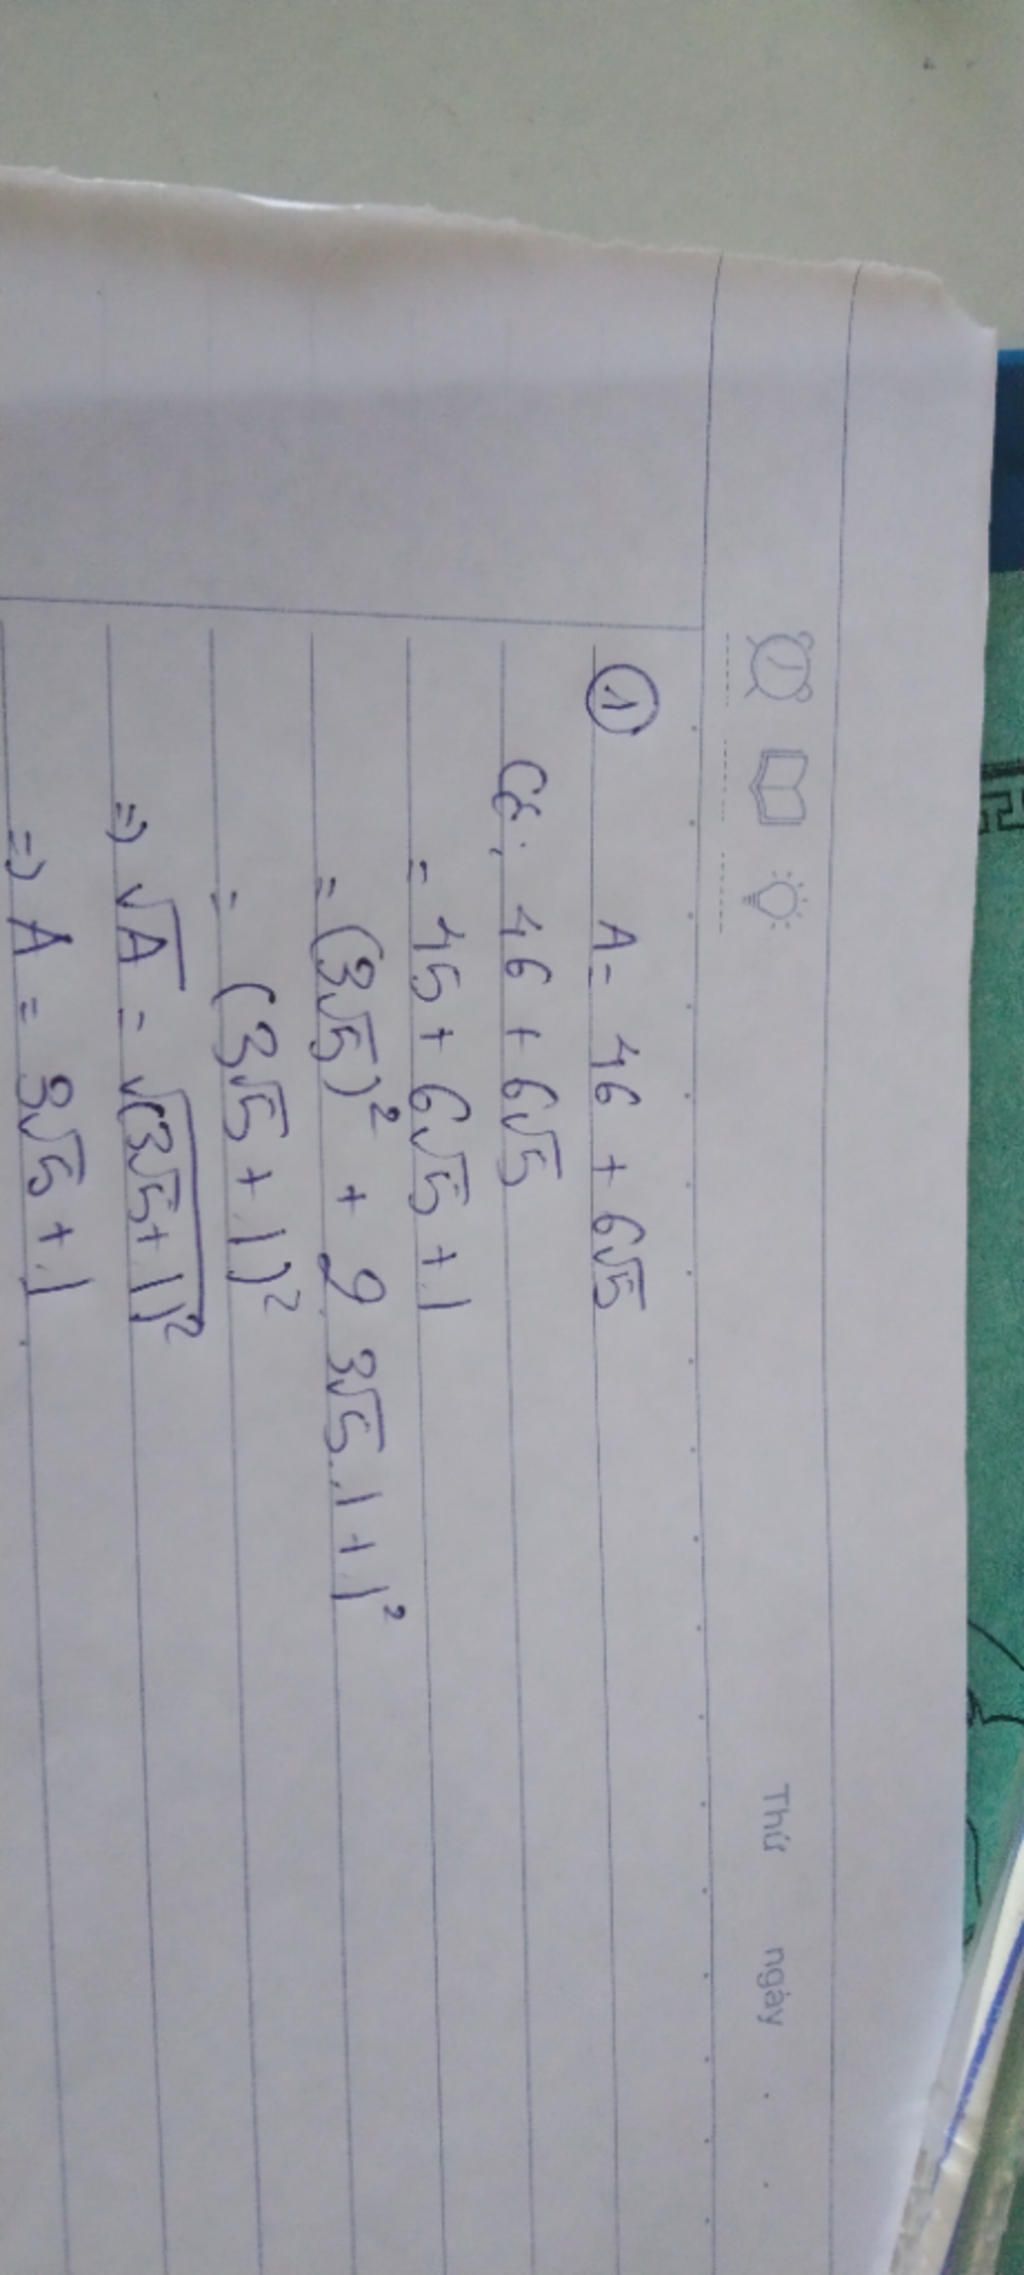 Thứ ngày
① A = 46 + 6√5
Có: 46 + 6√5
= 45 + 6√5 + 1
= (3√5)² + 2 3√5.1 + 1²
= (3√5 + 1)²
=> √A = √(3√5+1)²
=> A = 3√5 + 1